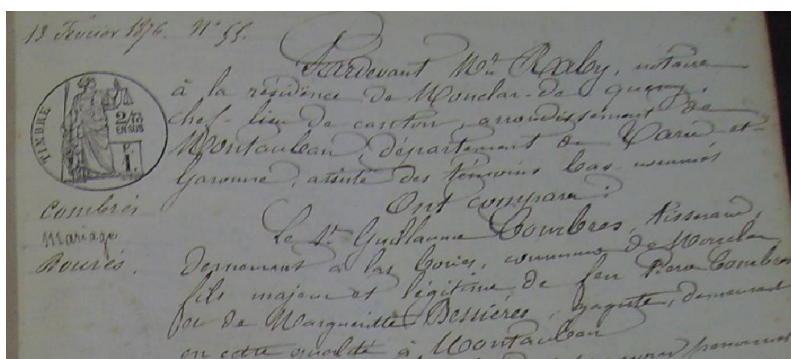 13 Février 1876. N° 55.
Pardevant Me Raby, notaire
à la résidence de Monclar-de quercy,
chef-lieu de canton, arrondissement de
Montauban, département de Tarn-et-
Garonne, assisté des témoins bas-nommés
Ont comparu :
TIMBRE
2/10
EN SUS
Combres
Mariage
Bourés.
Le Sr Guillaume Combres, tisserand,
Demeurant à las Bories, commune de Monclar
fils majeur et légitime de feu Pierre Combres
et de Marguerite Bessières, demeurant
en cette qualité à Montauban